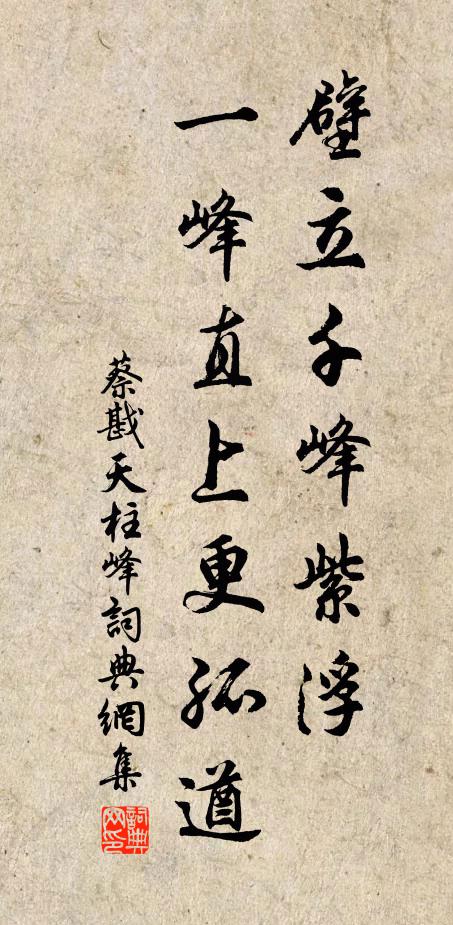 壁立千峰紫浮
一峰直上更孤遒
蔡戡天柱峰詞典網集
詞典網印